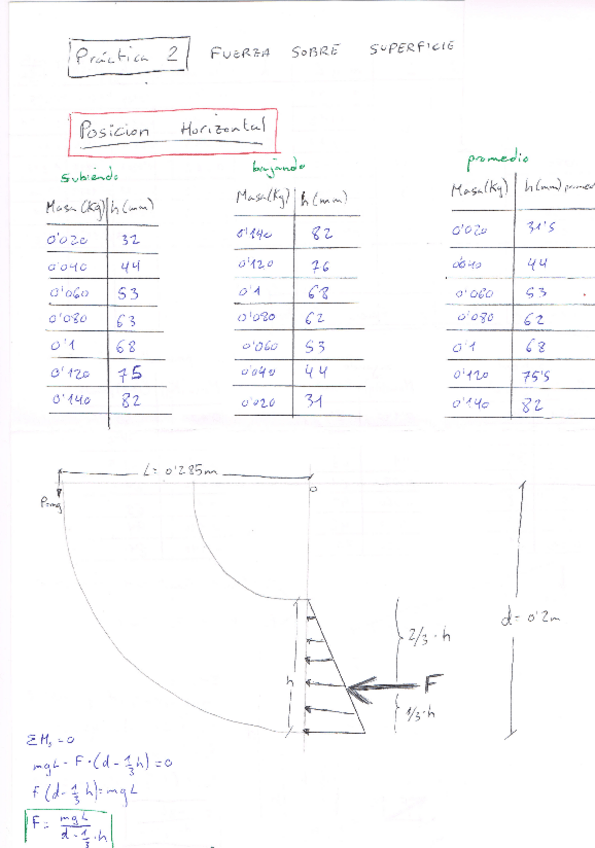 Práctica 2 FUERZA SOBRE SUPERFICIE
Posicion Horizontal
subiendo
Masa (Kg) h (mm)
0'020 32
0'040 44
0'060 53
0'080 63
0'1 68
0'120 75
0'140 82
bajando
Masa (Kg) h (mm)
0'140 82
0'120 76
0'1 68
0'080 62
0'060 53
0'040 44
0'020 31
promedio
Masa (Kg) h (mm) promed
0'020 31'5
0'040 44
0'060 53
0'080 62
0'1 68
0'120 75'5
0'140 82
L = 0'285m
O
P=mg
d = 0'2m
2/3·h
h
F
1/3·h
ΣM₀ = 0
mgL - F·(d - 1/3 h) = 0
F (d - 1/3 h) = mgL
F = mgL / d - 1/3·h